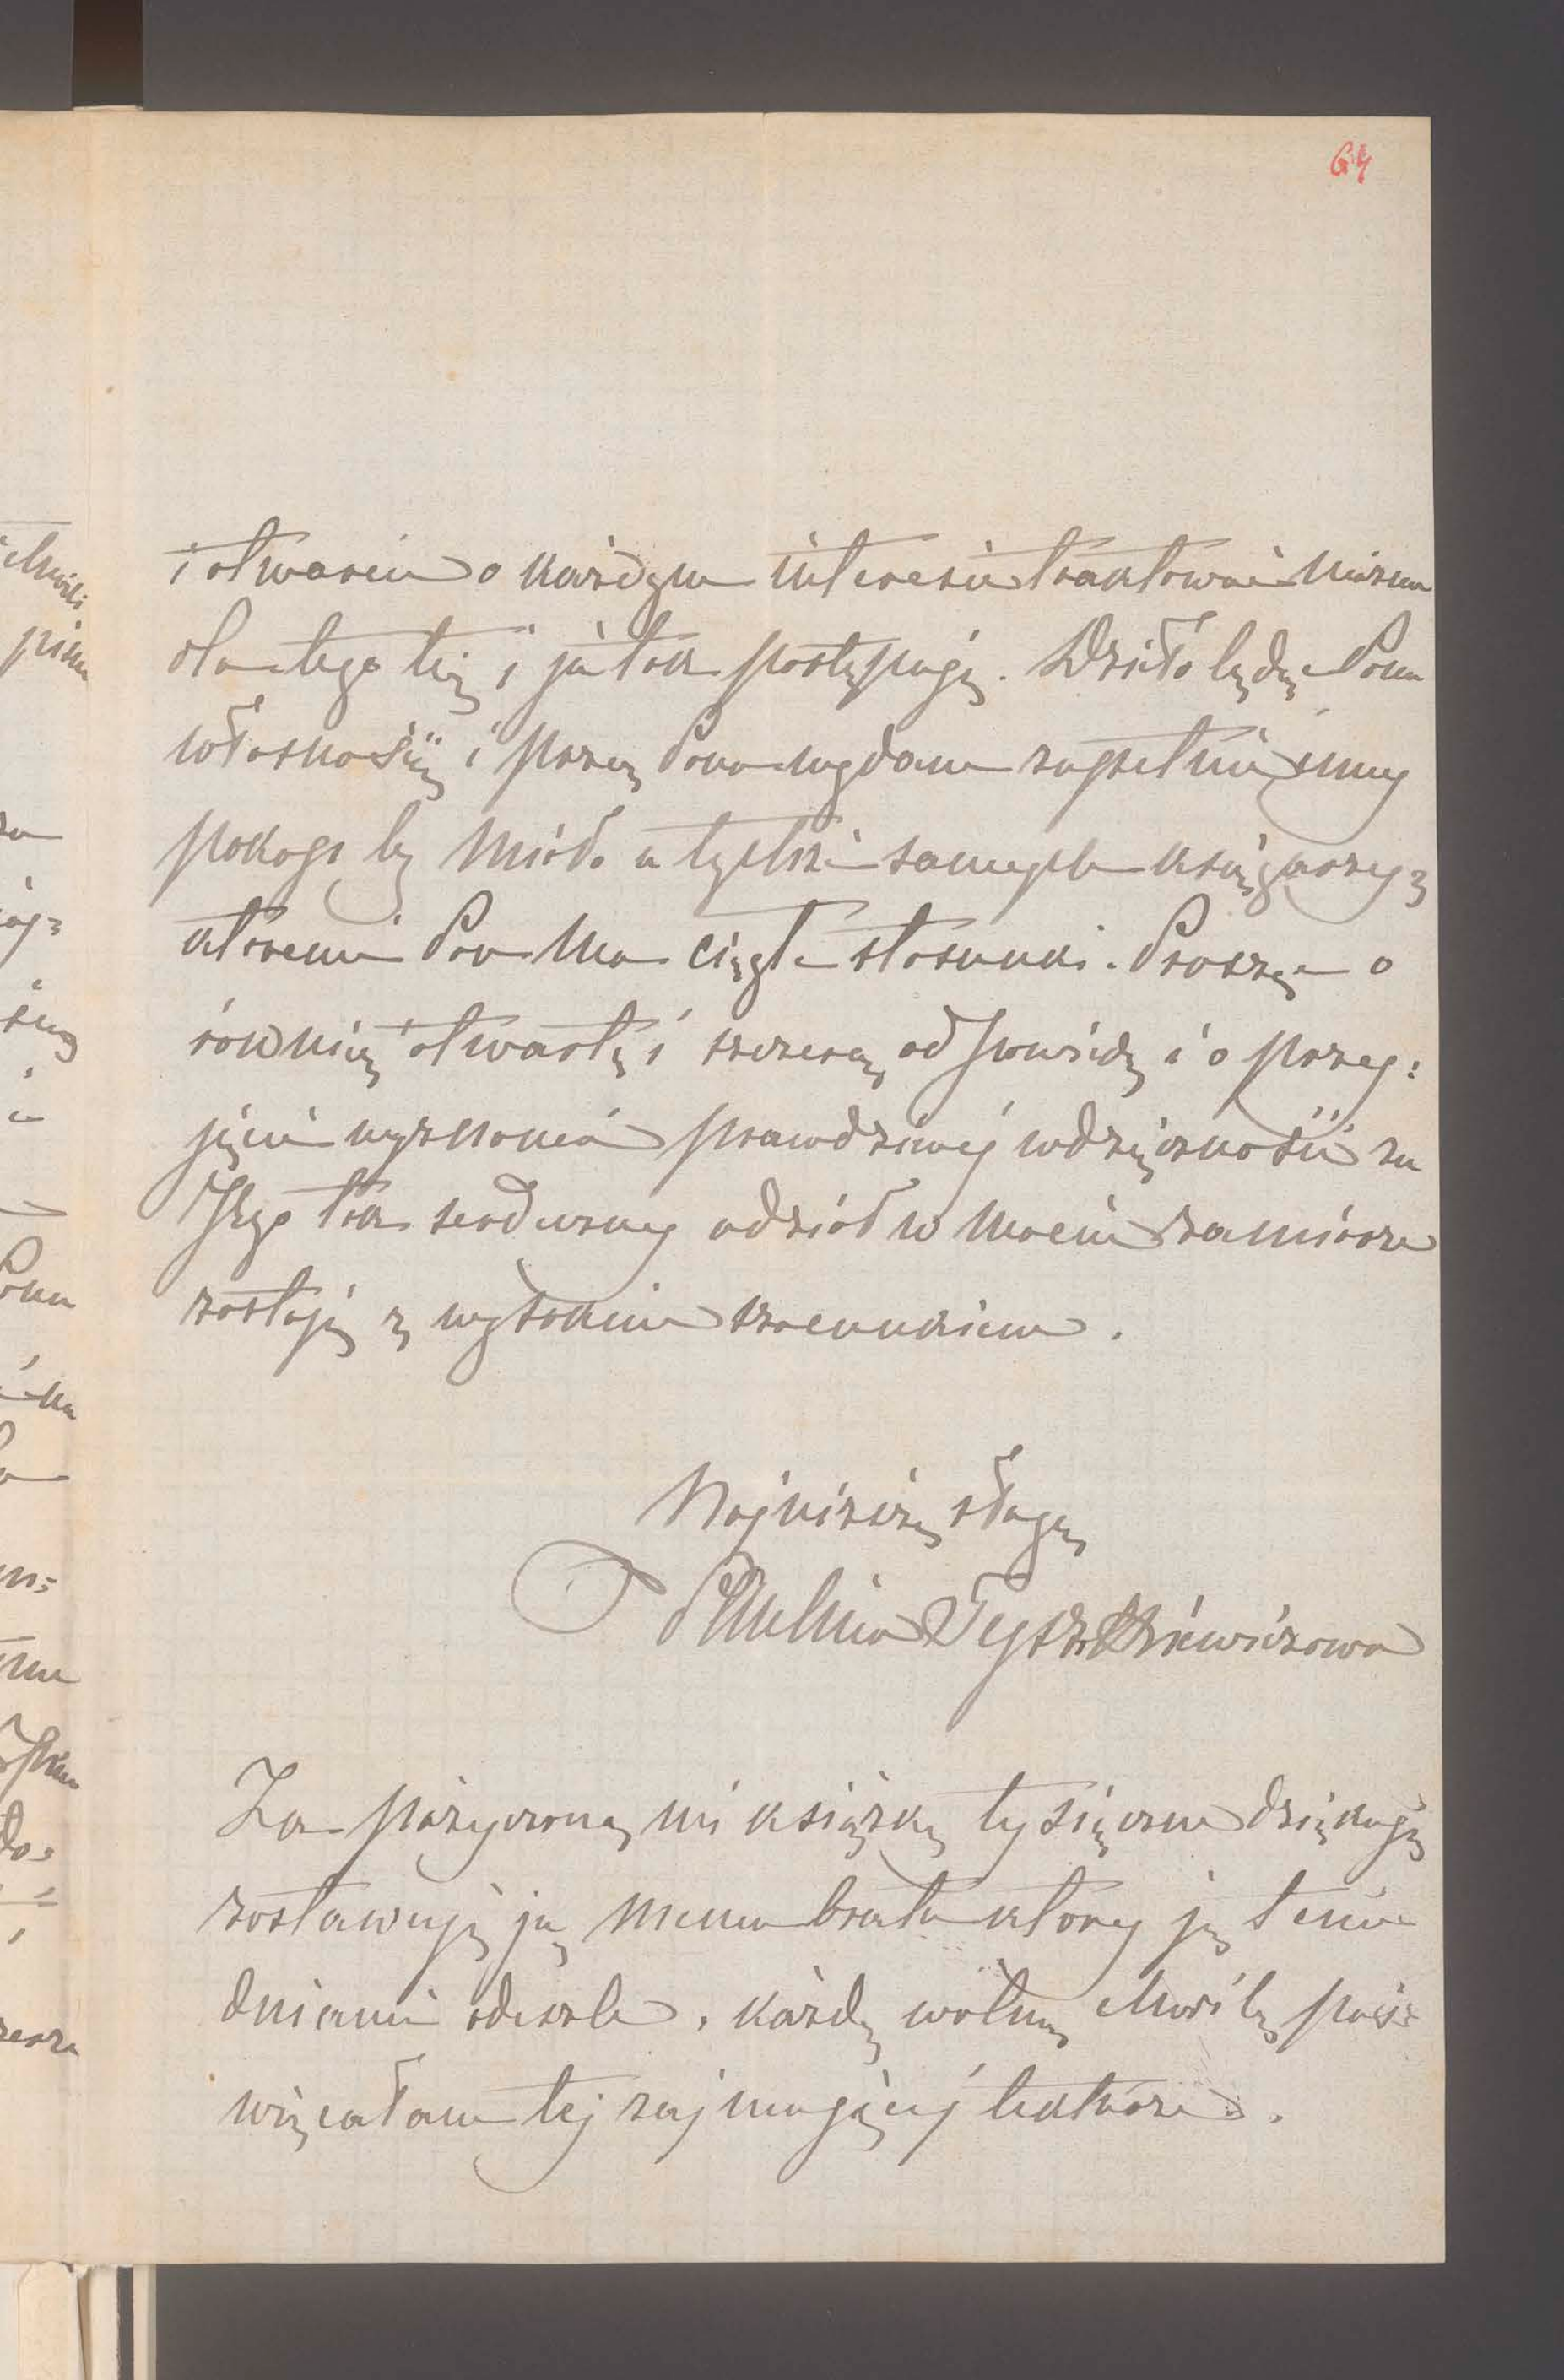 64
i otwarcie o każdym interesie traktować można
dla tego też i ja tak postępuję. Dzieło będzie Pana
własnością i przez Pana wydane zupełnie inny
pokup by miało u tychże samych księgarzy z
któremi Pan ma ciągłe stosunki. Proszę o
równię otwartą i szczerą odpowiedź i o przy:
jęcie wyznania prawdziwej wdzięczności za
Jego tak serdeczny udział w moim zamiarze
zostaję z wysokim szacunkiem.
Najniższą sługą
Paulina Tyszkiewiczowa
Za pożyczoną mi książkę tysięczne dziękuję
zostawuję ją memu bratu który ją temi
dniami odeszle. każdą wolną chwilę poś:
więcałam tej zajmującej lekturze.